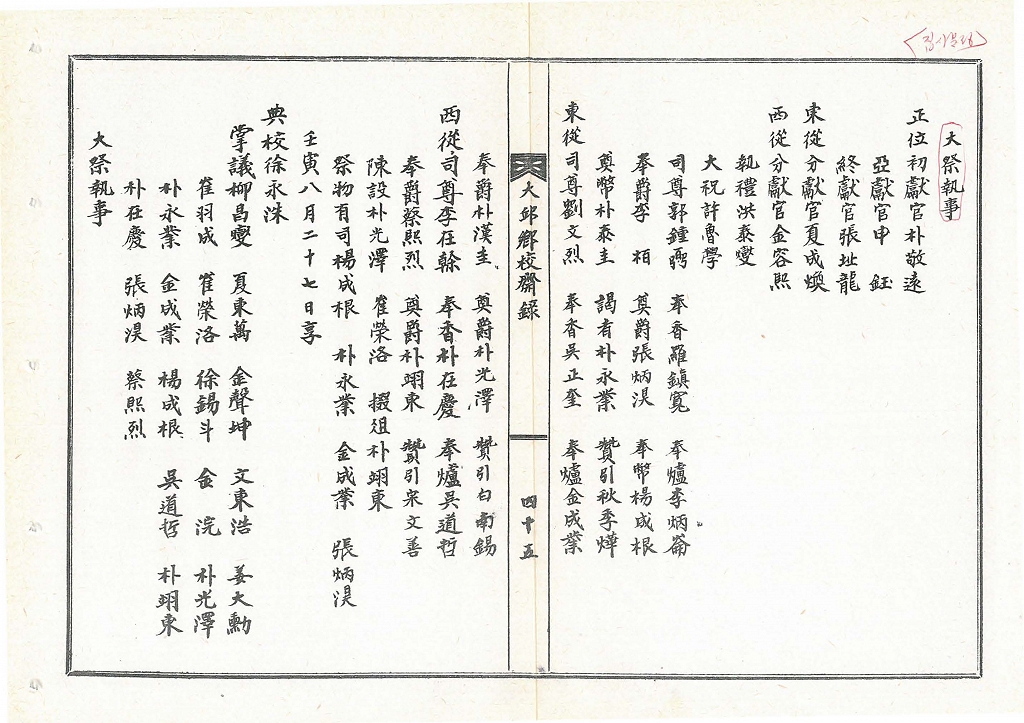 大祭執事
正位初獻官朴敬遠
亞獻官申 鈺
終獻官張址龍
東從分獻官夏成煥
西從分獻官金容熙
執禮洪泰燮
大祝許魯學
司尊郭鍾 奉香羅鎭寬 奉爐李炳崙
奉爵李 栢 奠爵張炳淏 奉幣楊成根
奠幣朴泰圭 謁者朴永業 贊引秋季燁
東從司尊劉文烈 奉香吳正奎 奉爐金成業
大邱鄕校齋錄 四十五
奉爵朴漢圭 奠爵朴光澤 贊引白南錫
西從司尊李在榦 奉香朴在慶 奉爐吳道哲
奉爵蔡熙烈 奠爵朴翊東 贊引宋文善
陳設朴光澤 崔榮洛 掇俎朴翊東
祭物有司楊成根 朴永業 金成業 張炳淏
壬寅八月二十七日享
典校徐永洙
掌議柳昌燮 夏東萬 金聲坤 文東浩 姜大勳
崔羽成 崔榮洛 徐錫斗 金 浣 朴光澤
朴永業 金成業 楊成根 吳道哲 朴翊東
朴在慶 張炳淏 蔡熙烈
大祭執事